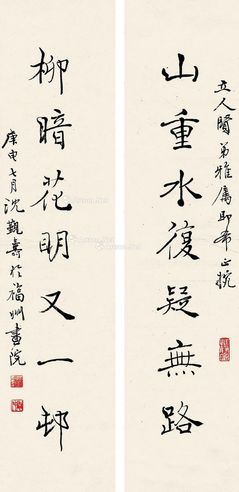 立人贤弟雅属即希正捥
山重水復疑無路
柳暗花明又一邨
庚申七月沈觐寿於福州畫院